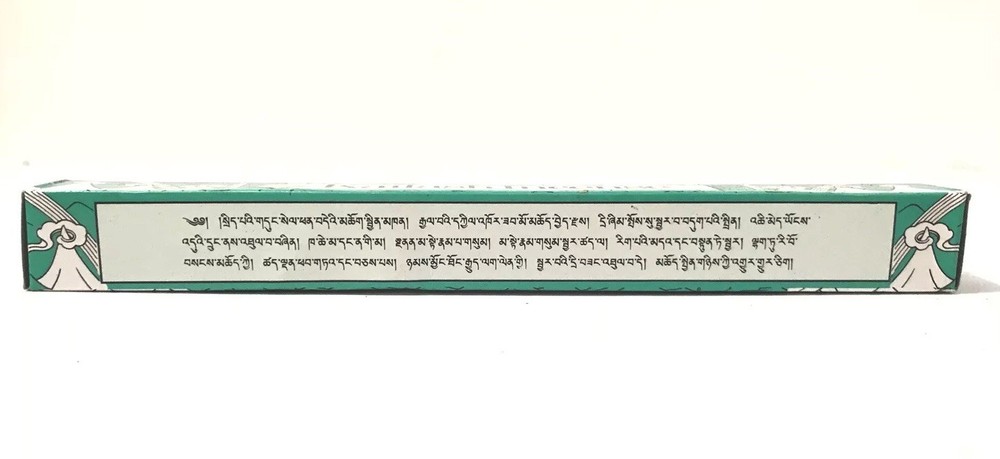 ༄༅། །སྲིད་པའི་གདུང་སེལ་ཕན་བདེའི་མཆོག་སྦྱིན་མཁན། རྒྱལ་བའི་དཀྱིལ་འཁོར་ཟབ་མོ་མཆོད་བྱེད་རྫས། དྲི་ཞིམ་སྤོས་སུ་སྦྱར་བ་བདུག་པའི་སྤྲིན། འཆི་མེད་ཡོངས་
འདུའི་དྲུང་ནས་འཐུལ་བ་བཞིན། ཁ་ཆེ་མ་དང་ན་གི་མ། རྣམ་པ་གསུམ། གསུམ་སྦྱར་ཚད་ལ། རིག་པའི་མདའ་དང་བསྟུན་ཏེ་སྦྱར། ལྷག་ཏུ་རི་བོ་
བསངས་མཆོད་ཀྱི། ཚད་ལྡན་ཕབ་གཏའ་དང་བཅས་པས། ཉམས་མྱོང་ཐོང་རྒྱུད་ལག་ལེན་གྱི། སྦྱར་བའི་དྲི་བཟང་འཐུལ་བ་དེ། མཆོད་སྦྱིན་གཉིས་ཀྱི་འགྱུར་གྱུར་ཅིག།